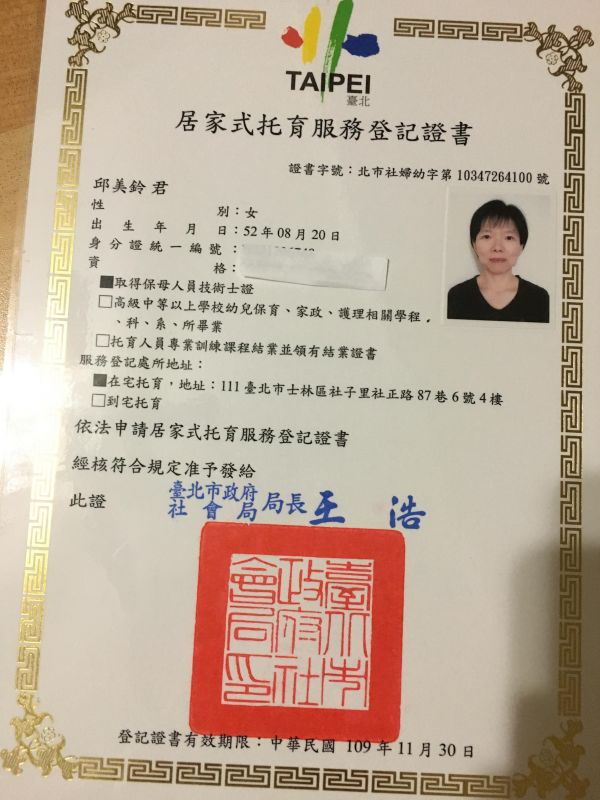 TAIPEI
臺北
居家式托育服務登記證書
證書字號：北市社婦幼字第 10347264100 號
邱美鈴 君
性 別：女
出 生 年 月 日：52 年 08 月 20 日
身 分 證 統 一 編 號：
資 格：
■取得保母人員技術士證
□高級中等以上學校幼兒保育、家政、護理相關學程、
、科、系、所畢業
□托育人員專業訓練課程結業並領有結業證書
服務登記處所地址：
■在宅托育，地址：111 臺北市士林區社子里社正路 87 巷 6 號 4 樓
□到宅托育
依法申請居家式托育服務登記證書
經核符合規定准予發給
此證
臺北市政府
社會局 局長 王 浩
臺北市
政府社
會局印
登記證書有效期限：中華民國 109 年 11 月 30 日